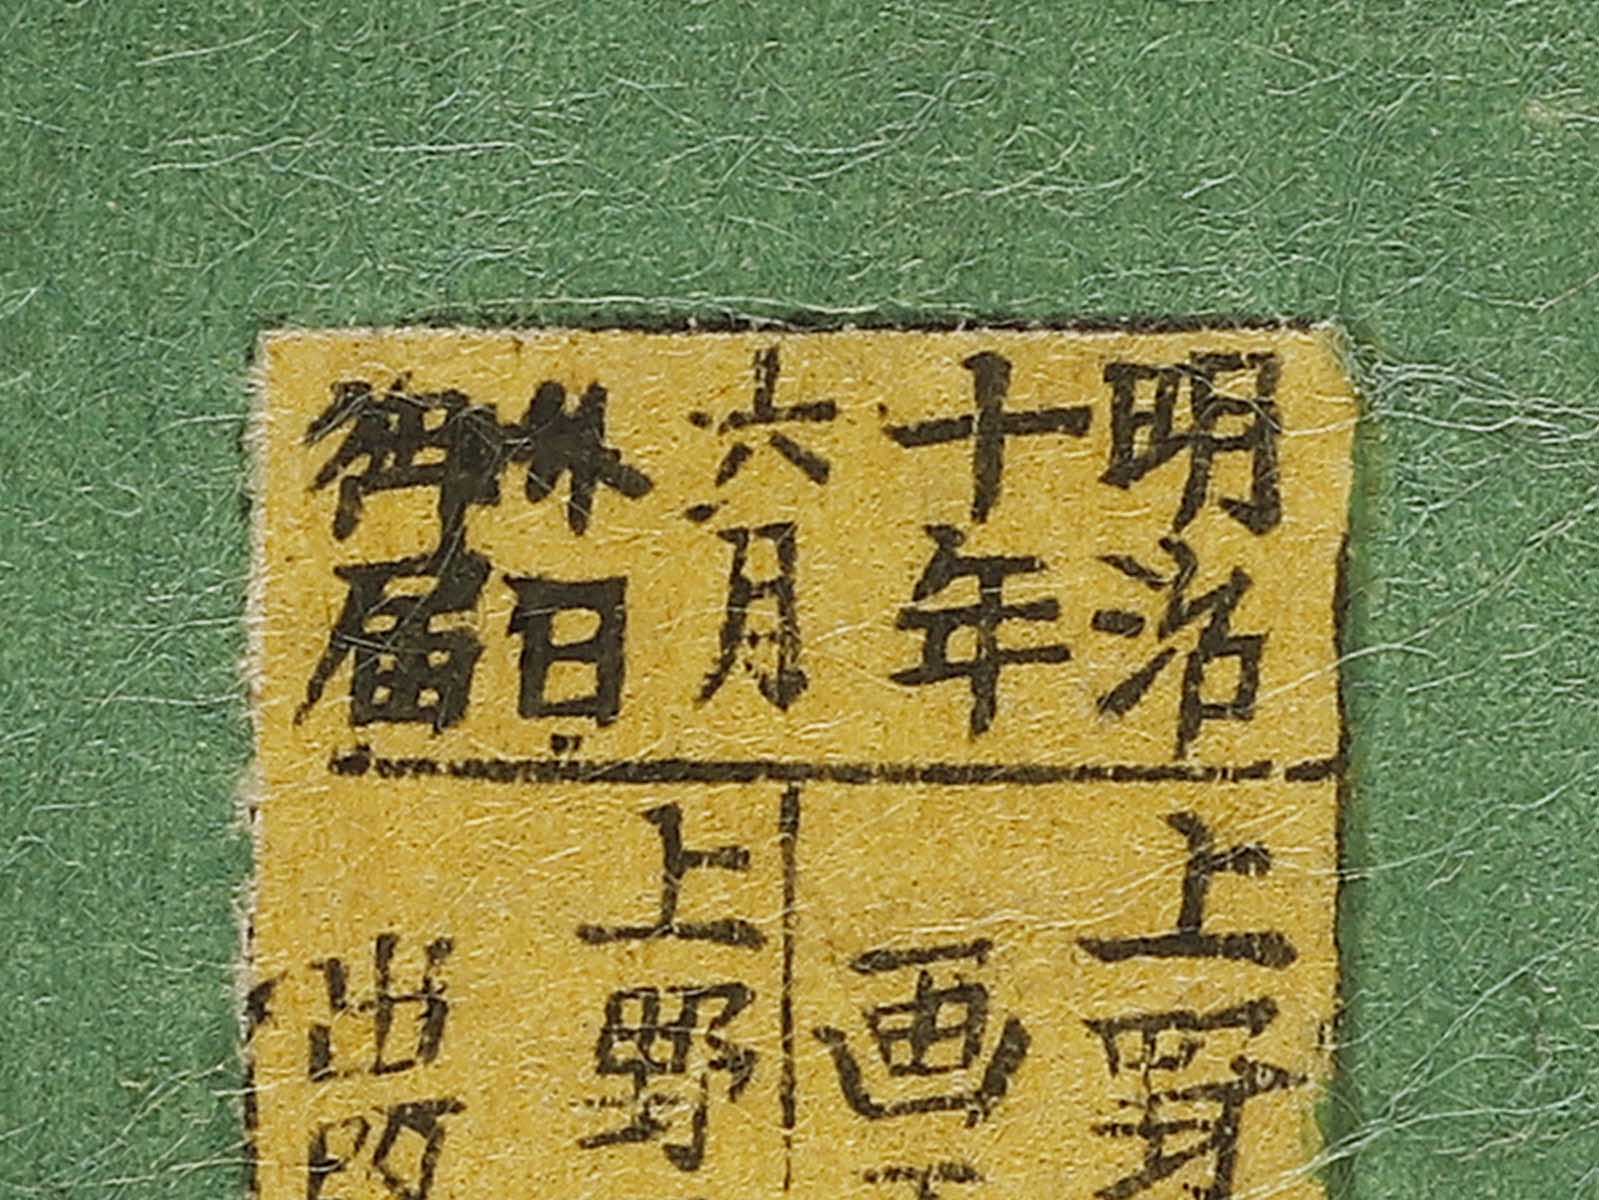 明治
十年
六月
卅日
御届
上野
画
上野
出